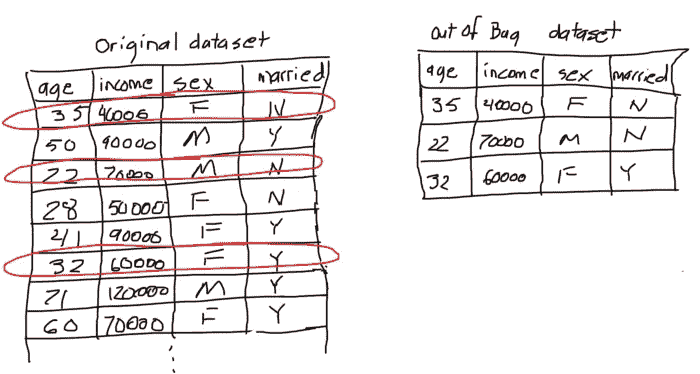 Original dataset
age income sex married
35 40000 F N
50 90000 M Y
22 70000 M N
28 50000 F N
41 90000 F Y
32 60000 F Y
120000 M Y
60 70000 F Y
out of Bag dataset
age income sex married
35 40000 F N
22 70000 M N
32 60000 F Y